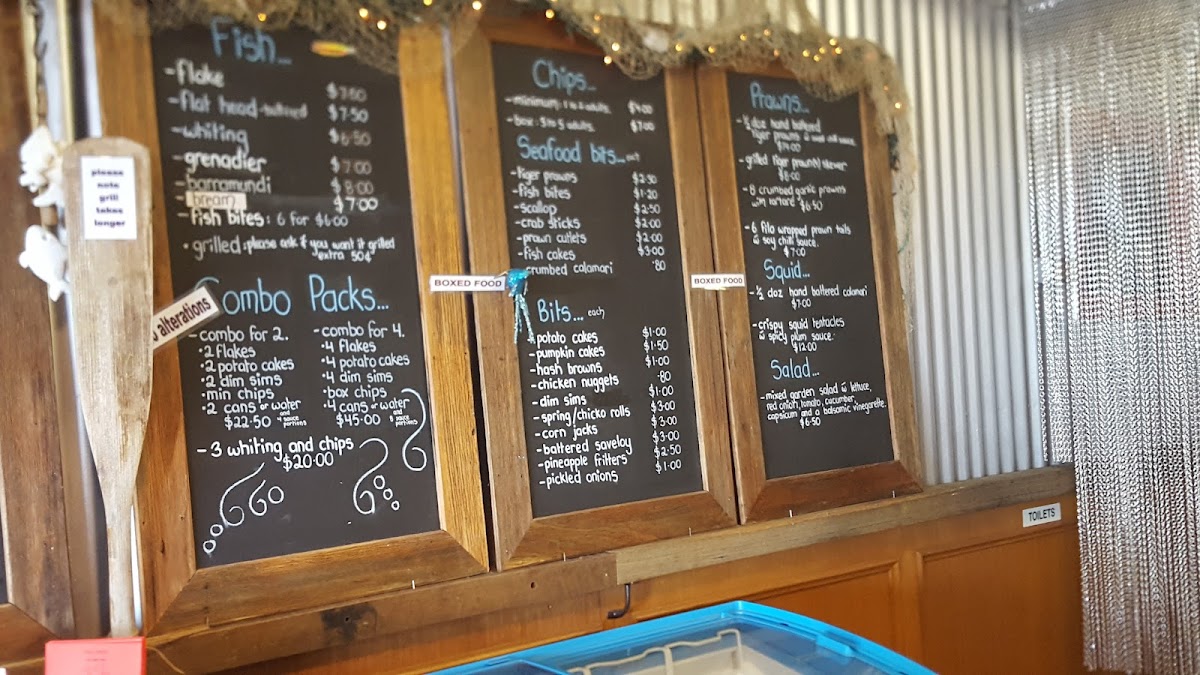 Fish...
-flake $7.50
-flat head-battered $7.50
-whiting $6.50
-grenadier $7.00
-barramundi $8.00
-bream $7.00
-fish bites: 6 for $6.00
•grilled: please ask if you want it grilled
extra 50¢
Combo Packs...
-combo for 2.
•2 flakes
•2 potato cakes
•2 dim sims
•min chips
•2 cans or water
and 4 sauce portions
$22.50
-combo for 4.
•4 flakes
•4 potato cakes
•4 dim sims
•box chips
•4 cans or water
and sauce portions
$45.00
-3 whiting and chips
$20.00
please
note
grill
takes
longer
alterations
BOXED FOOD
Chips...
-minimum: 1 to 2 adults. $4.00
-box: 3 to 5 adults. $7.00
Seafood bits... each
-tiger prawns $2.50
-fish bites $1.20
-scallop $2.50
-crab sticks $2.00
-prawn cutlets $2.00
-fish cakes $3.00
crumbed calamari .80
Bits... each
potato cakes $1.00
-pumpkin cakes $1.50
-hash browns $1.00
-chicken nuggets .80
-dim sims $1.00
-spring/chicko rolls $3.00
-corn jacks $3.00
-battered saveloy $3.00
-pineapple fritters $2.50
-pickled onions $1.00
BOXED FOOD
Prawns...
-½ doz hand battered
tiger prawns w sweet chili sauce.
$14.00
-grilled tiger prawn(4) skewer
$8.00
-8 crumbed garlic prawns
w/m tartare $6.50
-6 filo wrapped prawn tails
w soy chili sauce.
$7.00
Squid...
-½ doz hand battered calamari
$7.00
-crispy squid tentacles
w spicy plum sauce.
$12.00
Salad...
-mixed garden salad w lettuce,
red onion, tomato, cucumber,
capsicum and a balsamic vinegarette.
$6.50
TOILETS